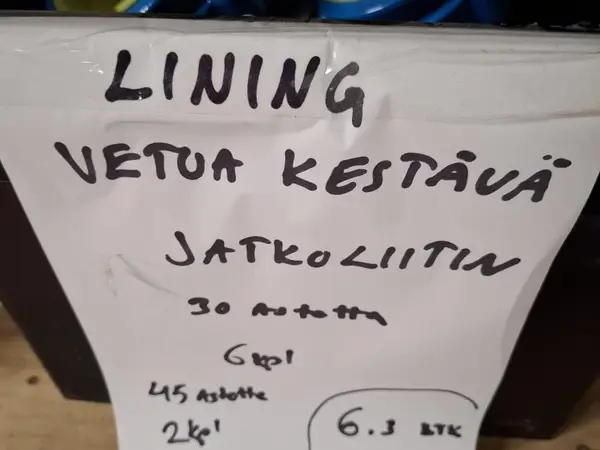 LINING
VETOA KESTÄVÄ
JATKOLIITIN
30 Astetta
6 kpl
45 Astette
2 kpl
6.3 BTK